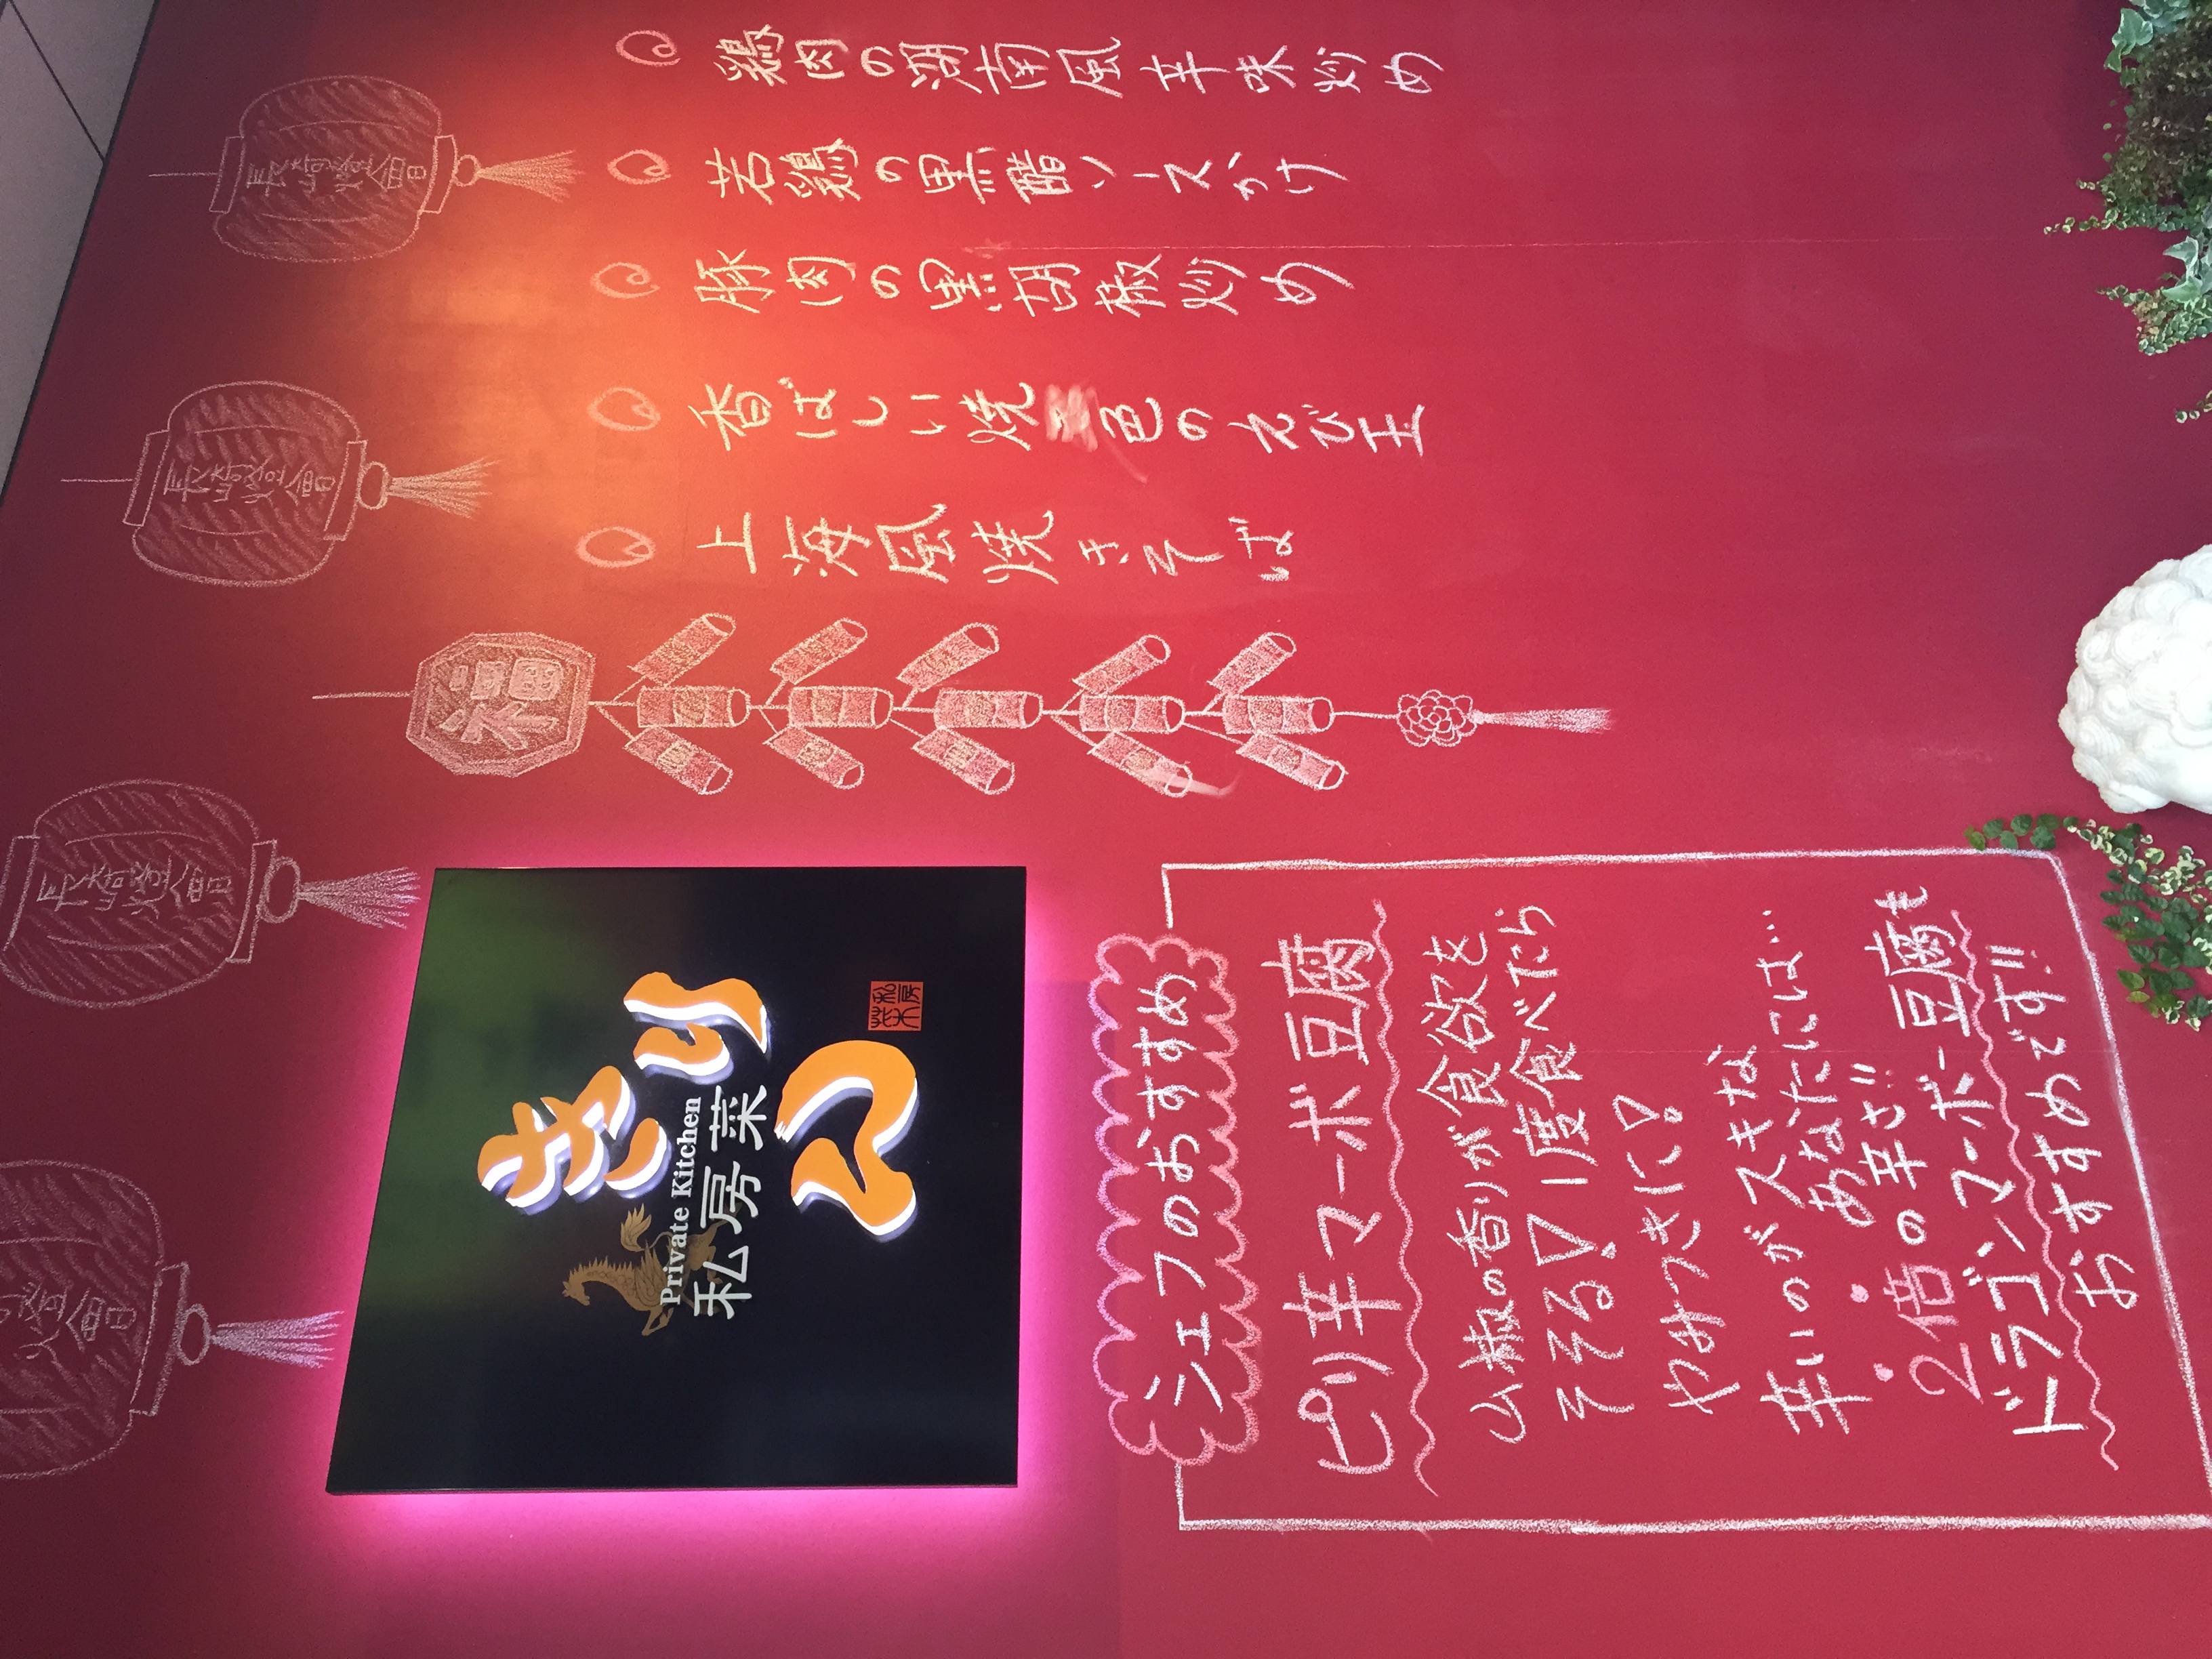 長崎燈會
長崎燈會
長崎燈會
燈會
鶏肉の湖南風辛味炒め
若鶏の黒醋ソースかけ
豚肉の黒胡椒炒め
香ばしい焼色のえび玉
上海風焼きそば
福
きりん
Private Kitchen
私房菜
シェフのおすすめ
ピリ辛マーボ豆腐
山椒の香りが食欲を
そそる♡1度食べたら
やみつきに♡
辛いのがスキな
あなたには…
2倍の辛さ!!
ドラゴンマーボー豆腐も
おすすめです!!